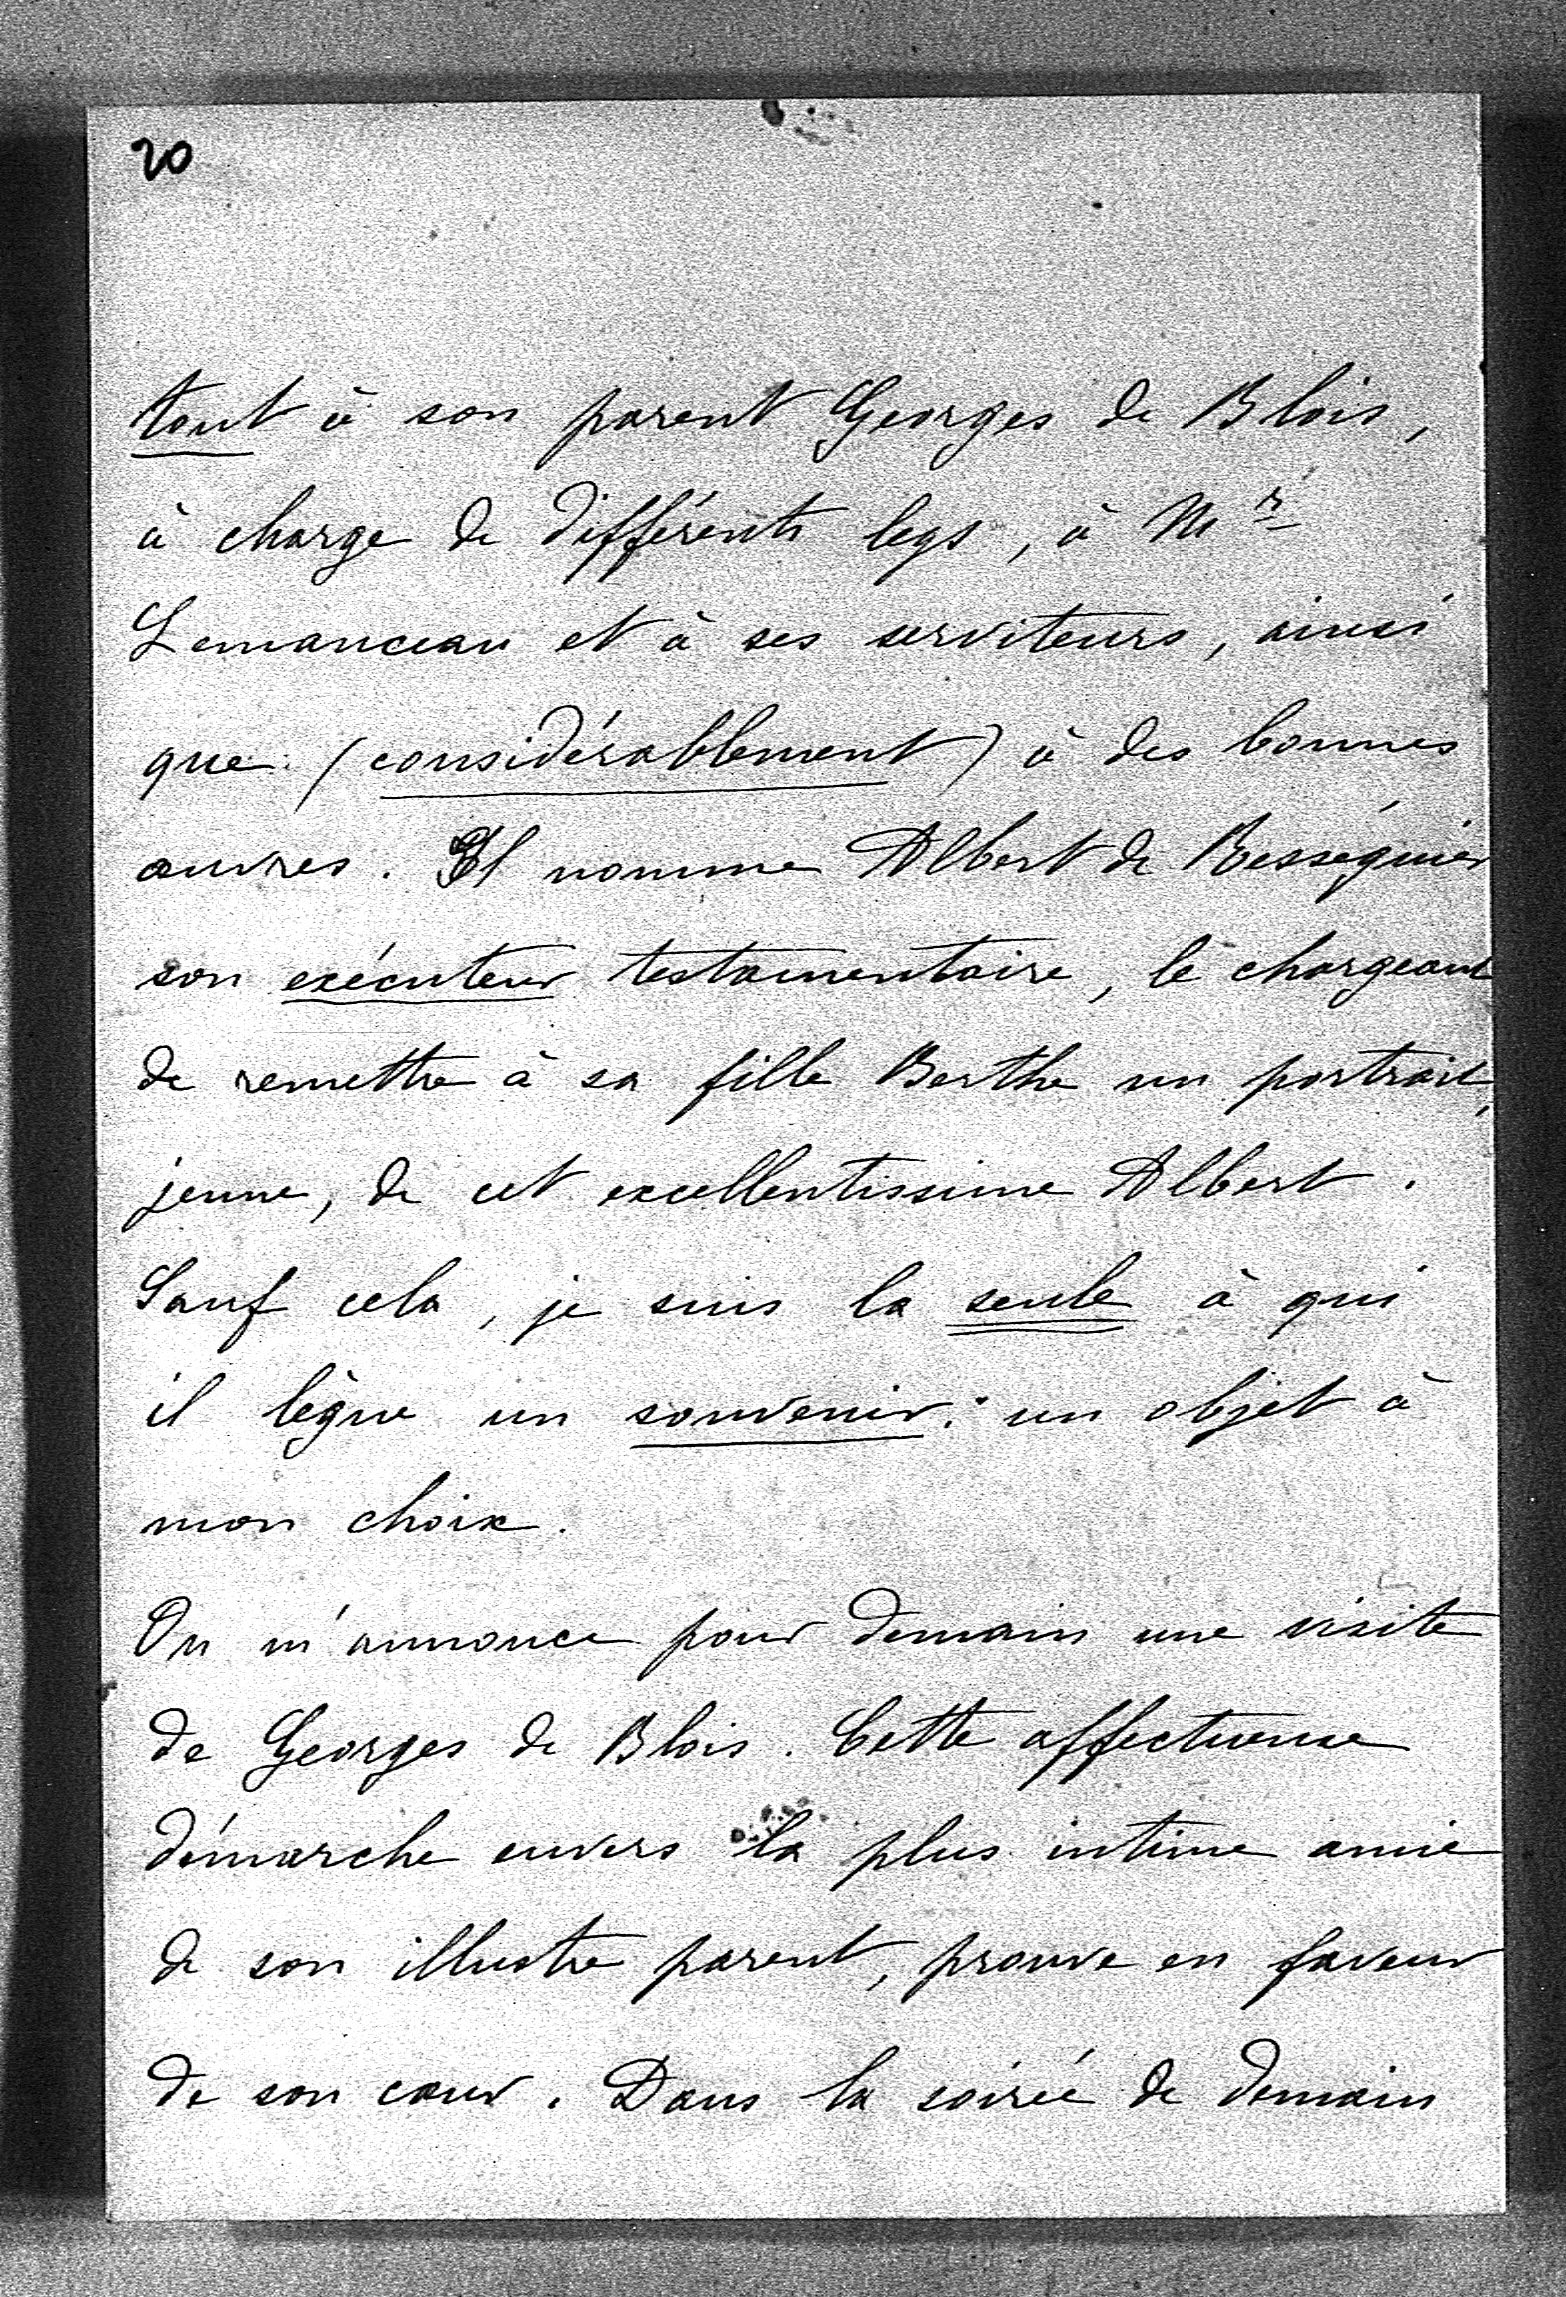 20
tout à son parent Georges de Blois,
à charge de différents legs, à Mr
Lemanceau et à ses serviteurs, ainsi
que (considérablement) à des bonnes
œuvres. Il nomme Albert de Rességuier
son exécuteur testamentaire, le chargeant
de remettre à sa fille Berthe un portrait,
jeune, de cet excellentissime Albert.
Sauf cela, je suis la seule à qui
il lègue un souvenir: un objet à
mon choix.
On m'annonce pour demain une visite
de Georges de Blois. Cette affectueuse
démarche envers la plus intime amie
de son illustre parent, prouve en faveur
de son cœur. Dans la soirée de demain